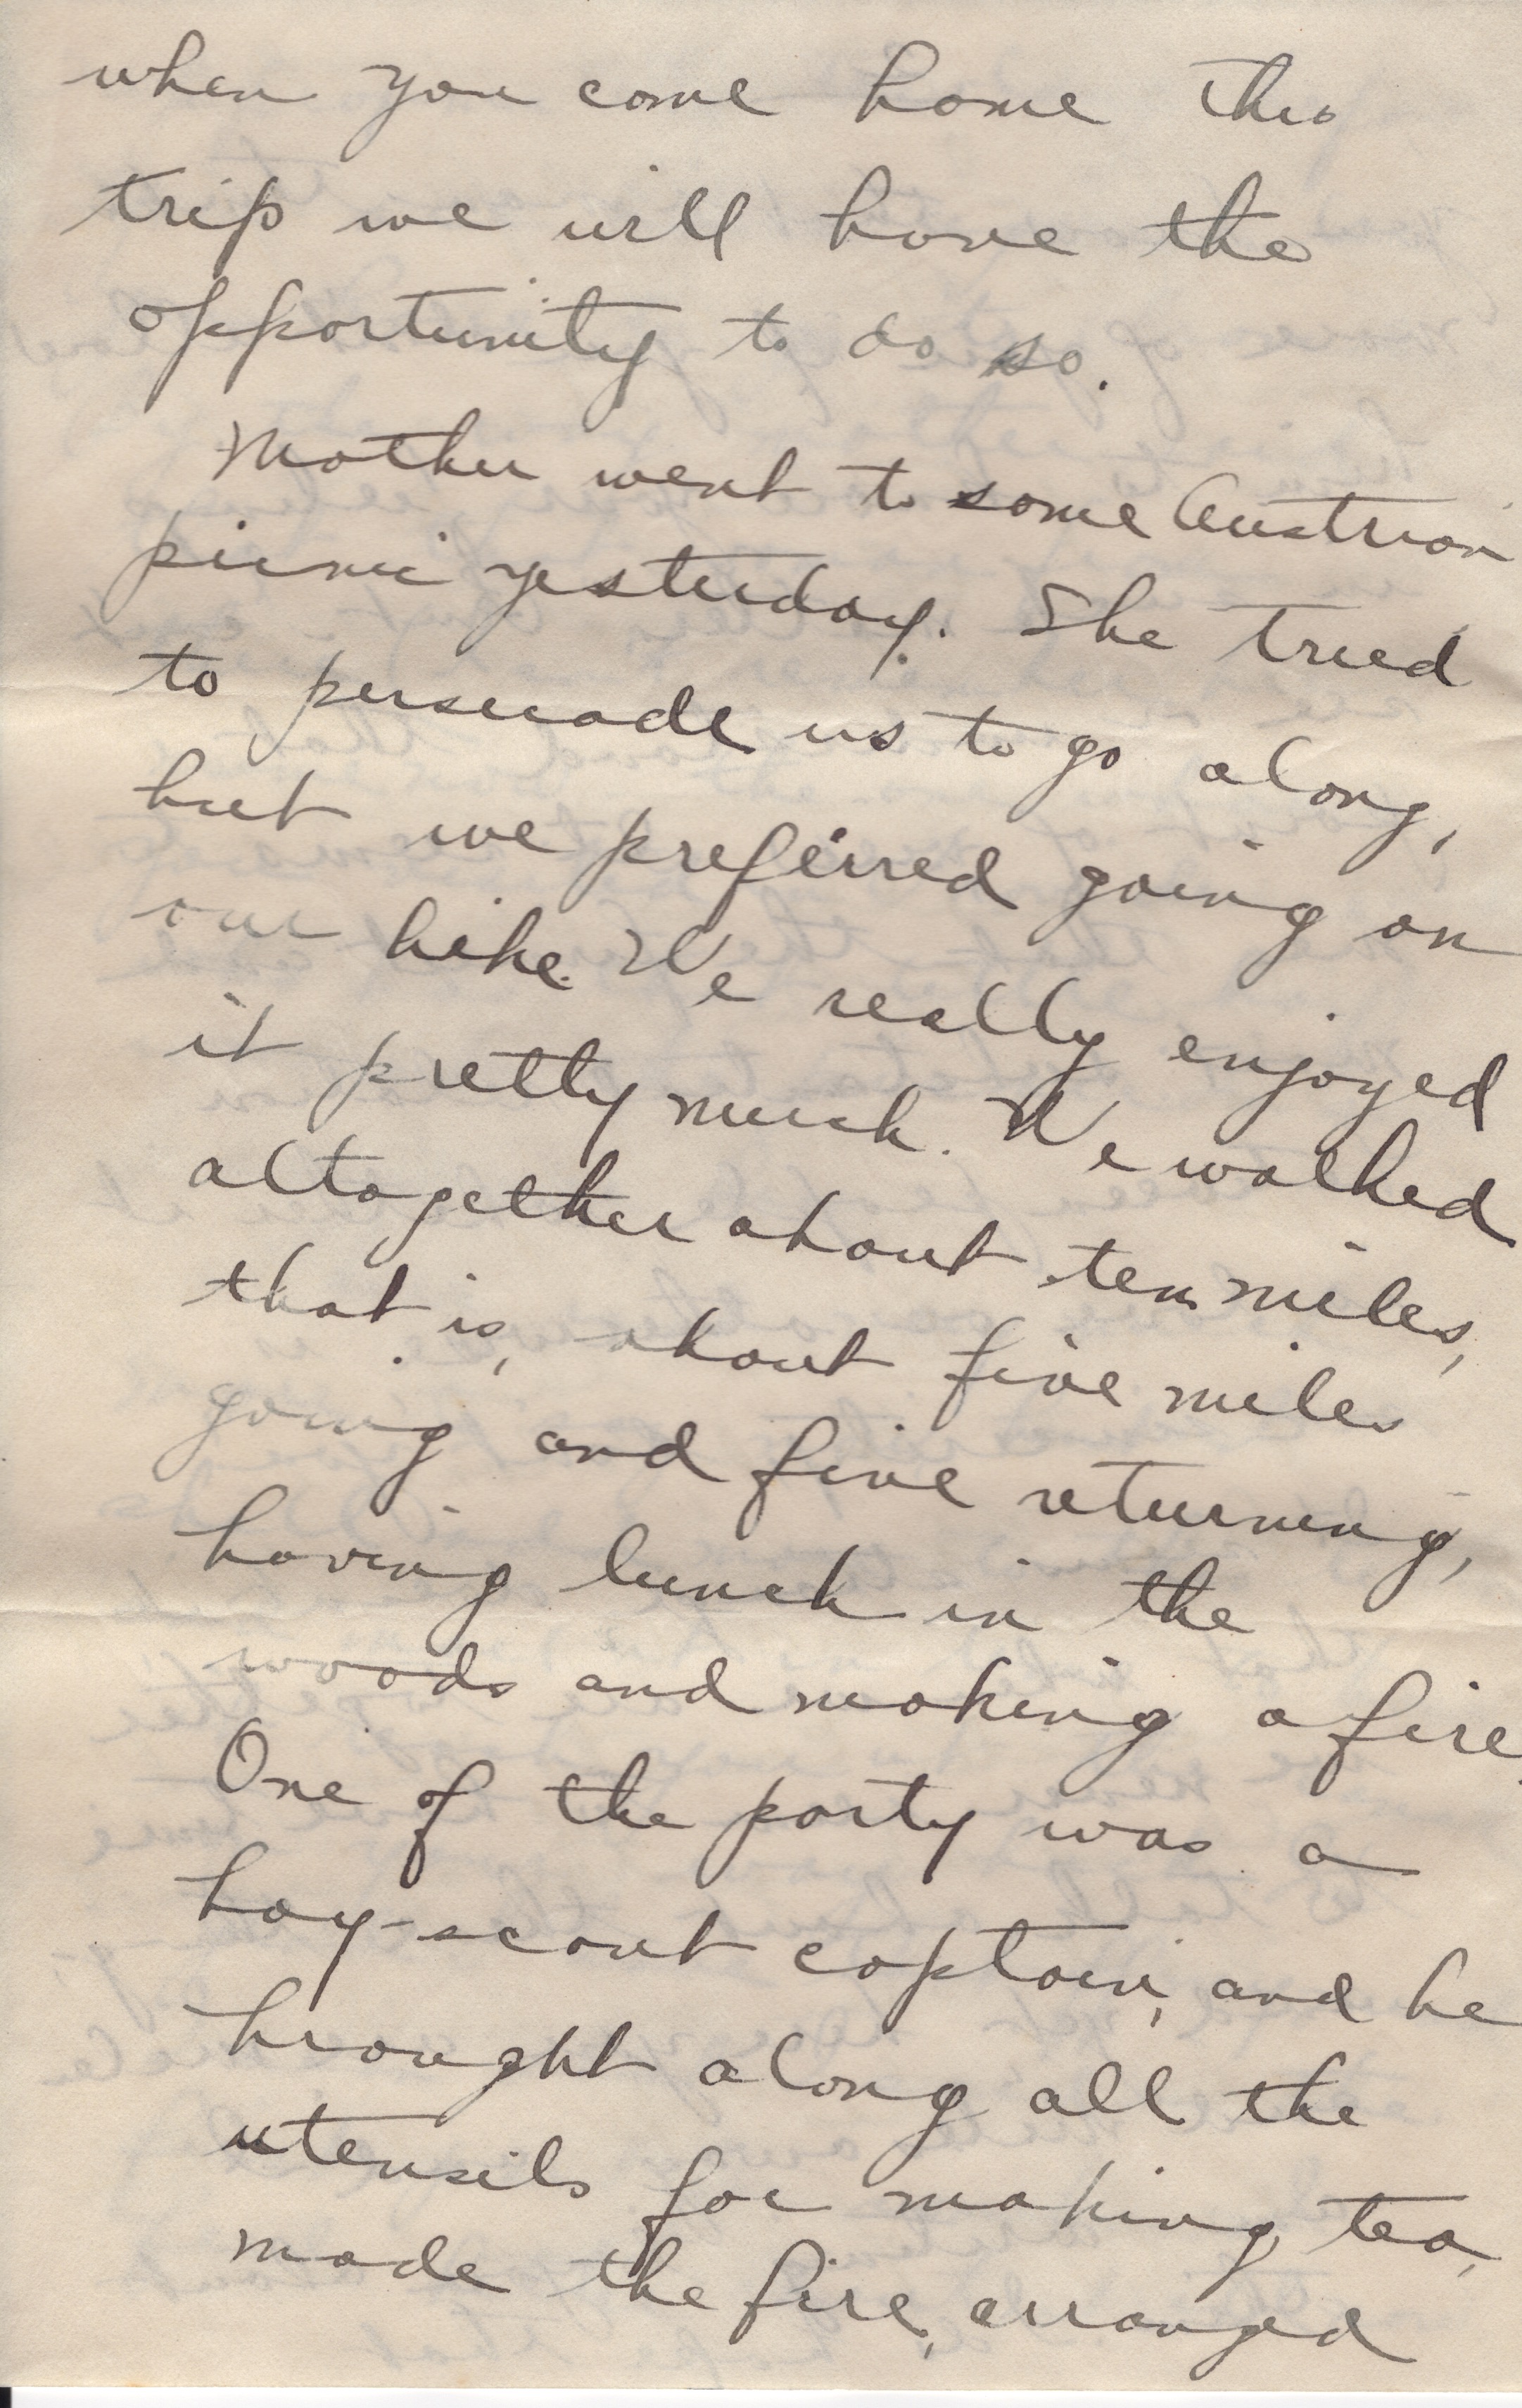 when you come home this
trip we will have the
opportunity to do so.
Mother went to some Austrian
picnic yesterday. She tried
to persuade us to go along,
but we preferred going on
our hike. We really enjoyed
it pretty much. We walked
altogether about ten miles,
that is, about five miles
going and five returning,
having lunch in the
woods and making a fire.
One of the party was a
boy-scout captain, and he
brought along all the
utensils for making tea,
made the fire, arranged